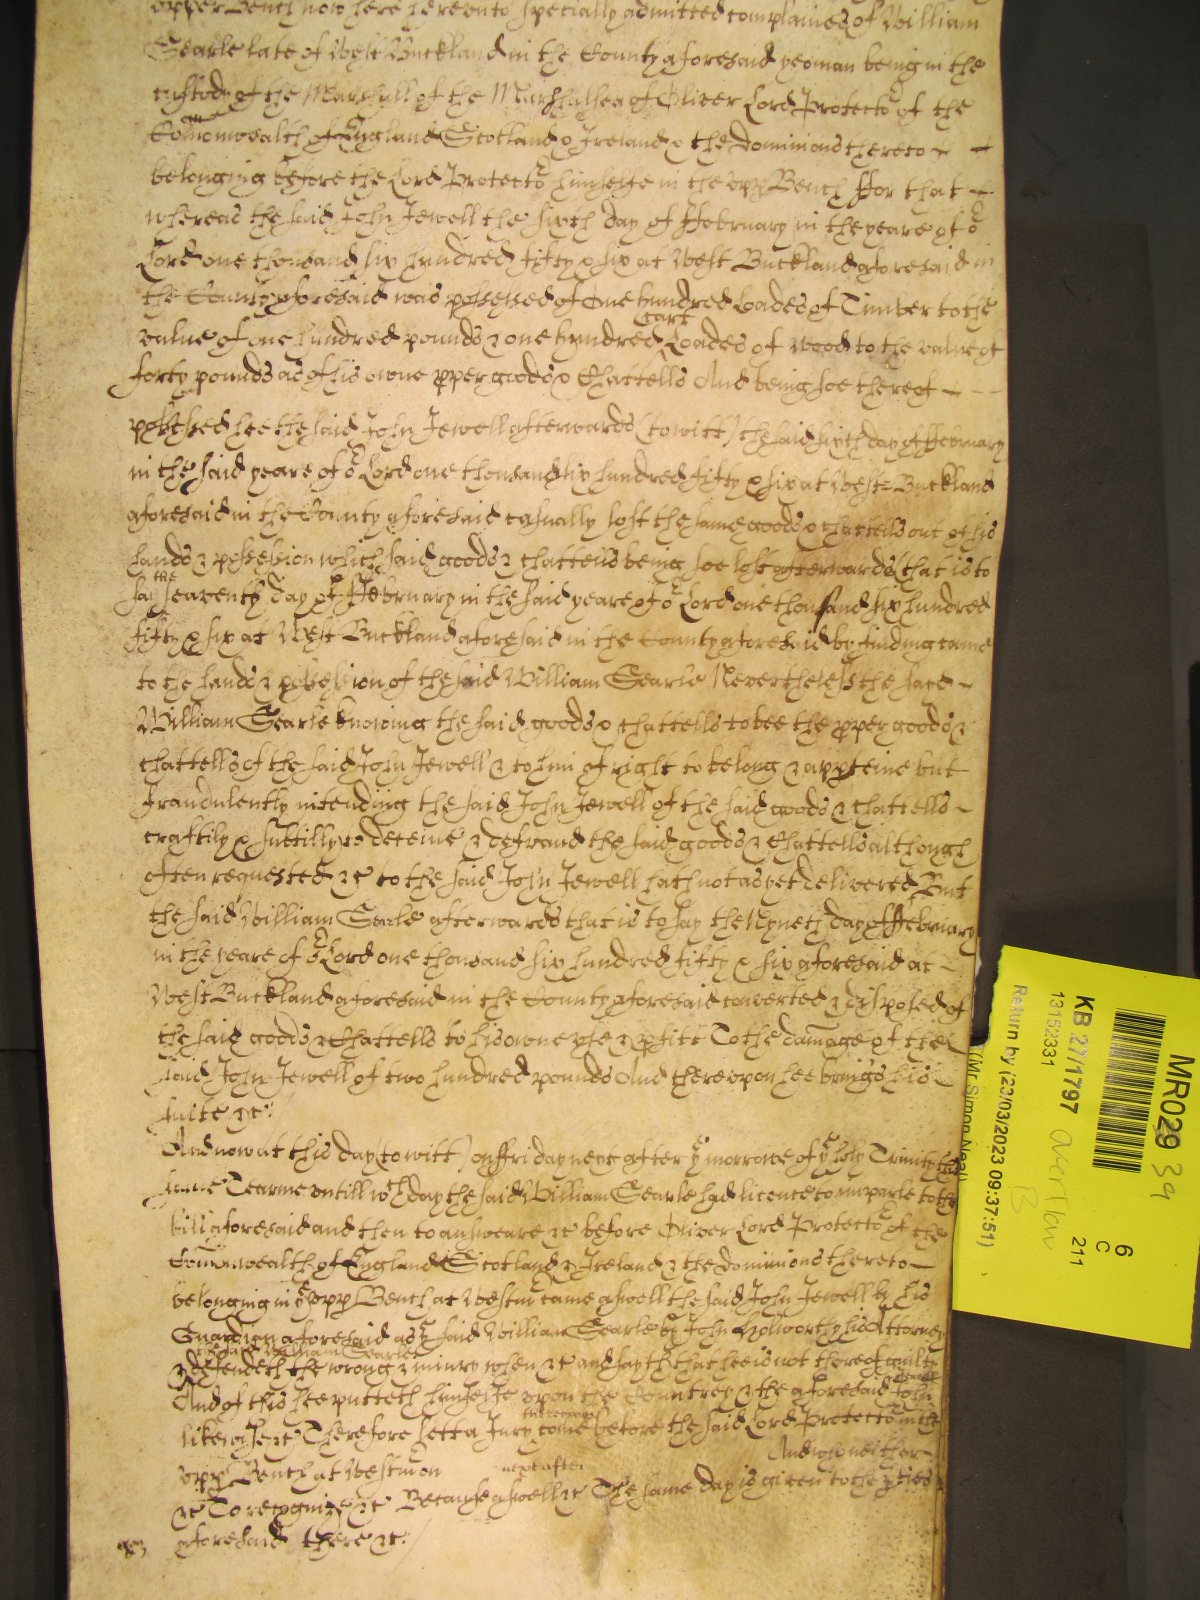 upper Bench now here hereunto specially admitted complaines of William
Searle late of West Buckland in the County aforesaid yeoman being in the
custody of the Marshall of the Marshalsea of Oliver Lord Protector of the
Comonwealth of England Scotland & Ireland & the Dominions thereto
belonging before the Lord Protector himselfe in the upp Bench ffor that
whereas the said John Jewell the sixth day of ffebruary in the yeare of or
Lord one thousand six hundred fifty & six at West Buckland aforesaid in
the County aforesaid was possessed of One hundred Loades of Timber to the
value of one hundred pounds & one hundred cart Loades of wood to the value of
forty pounds as of his owne pper goods & Chattells And being soe thereof
possessed hee the said John Jewell afterwards (to witt) the said sixth day of ffebruary
in the said yeare of or Lord one thousand six hundred fifty & six at West Buckland
aforesaid in the County aforesaid casually lost the same goods & chattells out of his
hands & possession which said goods & chattells being soe lost afterwards that is to
say the seaventh day of ffebruary in the said yeare of or Lord one thousand six hundred
fifty & six at West Buckland aforesaid in the County aforesaid by finding came
to the hands & possession of the said William Searle Neverthelesse the said
William Searle knowing the said goods & chattells to bee the pper goods &
chattells of the said John Jewell & to him of right to belong & appteine but
fraudulently intending the said John Jewell of the said goods & chattells
craftily & subtilly to deceive & defraud the said goods & Chattells although
often requested &c to the said John Jewell hath not as yet delivered But
the said William Searle afterwards that is to say the Nyneth day of ffebruary
in the yeare of or Lord one thousand six hundred fifty & six aforesaid at
West Buckland aforesaid in the County aforesaid converted & disposed of
the said goods & Chattells to his owne use & pfitt To the damage of the
said John Jewell of two hundred pounds And thereupon hee brings his
suite &c:
And now at this day (to witt) on ffriday next after ye morrowe of ye holy Trinity this
same Tearme untill wch day the said William Searle had licence to imparle to the
bill aforesaid and then to answeare &c before Oliver Lord Protector of the
Comonwealth of England Scotland & Ireland & the Dominions thereto
belonging in ye upp Bench at Westmr came aswell the said John Jewell by his
Guardian aforesaid as ye said William Searle by John Holworthy his Attorney
the said William Searle
& defendeth the wrong & iniury when &c and sayth that hee is not thereof guilty
And of this hee putteth himselfe upon the Countrey & the aforesaid John Jewell
likewise &c Therefore lett a Jury thereupon come before the said Lord Protector in the
upp Bench at Westm on next after And who neither
&c To recognize &c Because aswell &c The same day is given to the pties
aforesaid there &c:
MR029 39
6
C
211
KB 271/1797 overflow
13152331
B
Return by (23/03/2023 09:37:51)
(Mr Simon Neal)